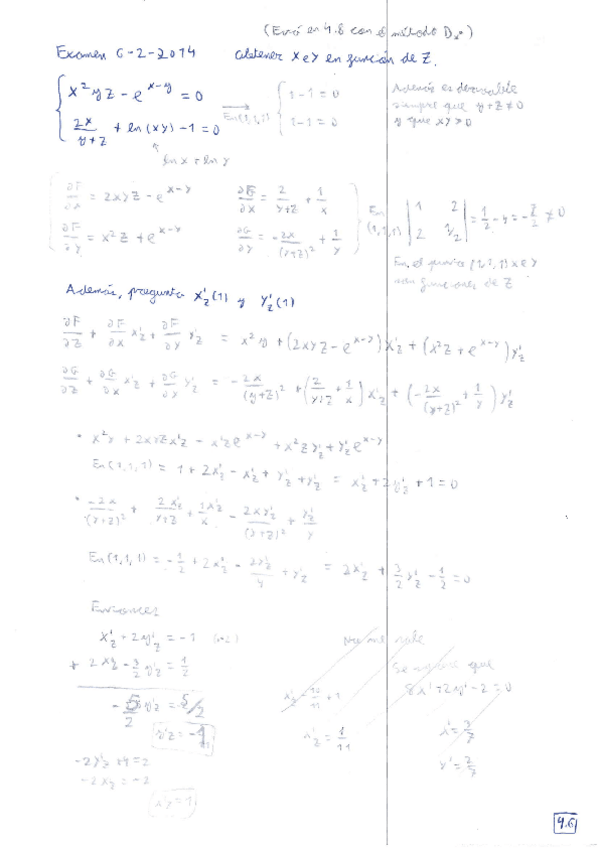 (Error en 4.8 con el método
Examen 6-2-2014 obtener x e y en función de z.
x²yz - e^(x-y) = 0
En (1,1,1)
1-1=0
Además es derivable
siempre que y+z≠0
y que xy>0
2x/(y+z) + ln(xy) - 1 = 0
1-1=0
ln x + ln y
∂F/∂x = 2xyz - e^(x-y) ∂G/∂x = 2/(y+z) + 1/x
∂F/∂y = x²z + e^(x-y) ∂G/∂y = -2x/(y+z)² + 1/y
En (1,1,1) |1 2; 2 1/2| = 1/2 - 4 = -7/2 ≠ 0
En el punto (1,1,1) x e y
son funciones de z
Además, pregunta x'z(1) y y'z(1)
∂F/∂z + ∂F/∂x x'z + ∂F/∂y y'z = x²y + (2xyz - e^(x-y)) x'z + (x²z + e^(x-y)) y'z
∂G/∂z + ∂G/∂x x'z + ∂G/∂y y'z = -2x/(y+z)² + (2/(y+z) + 1/x) x'z + (-2x/(y+z)² + 1/y) y'z
• x²y + 2xyz x'z - x'z e^(x-y) + x²z y'z + y'z e^(x-y)
En (1,1,1) = 1 + 2x'z - x'z + y'z + y'z = x'z + 2y'z + 1 = 0
• -2x/(y+z)² + 2x'z/(y+z) + 1x'z/x - 2xy'z/(y+z)² + y'z/y
En (1,1,1) = -1/2 + 2x'z - 2y'z/4 + y'z = 2x'z + 3/2 y'z - 1/2 = 0
Entonces
x'z + 2y'z = -1 No me sale
Se supone que
8x' + 2y' - 2 = 0
y'z = -1
x'z = 1/11
x' = 3/7
y' = 2/7
-2x'z = -2
4.6